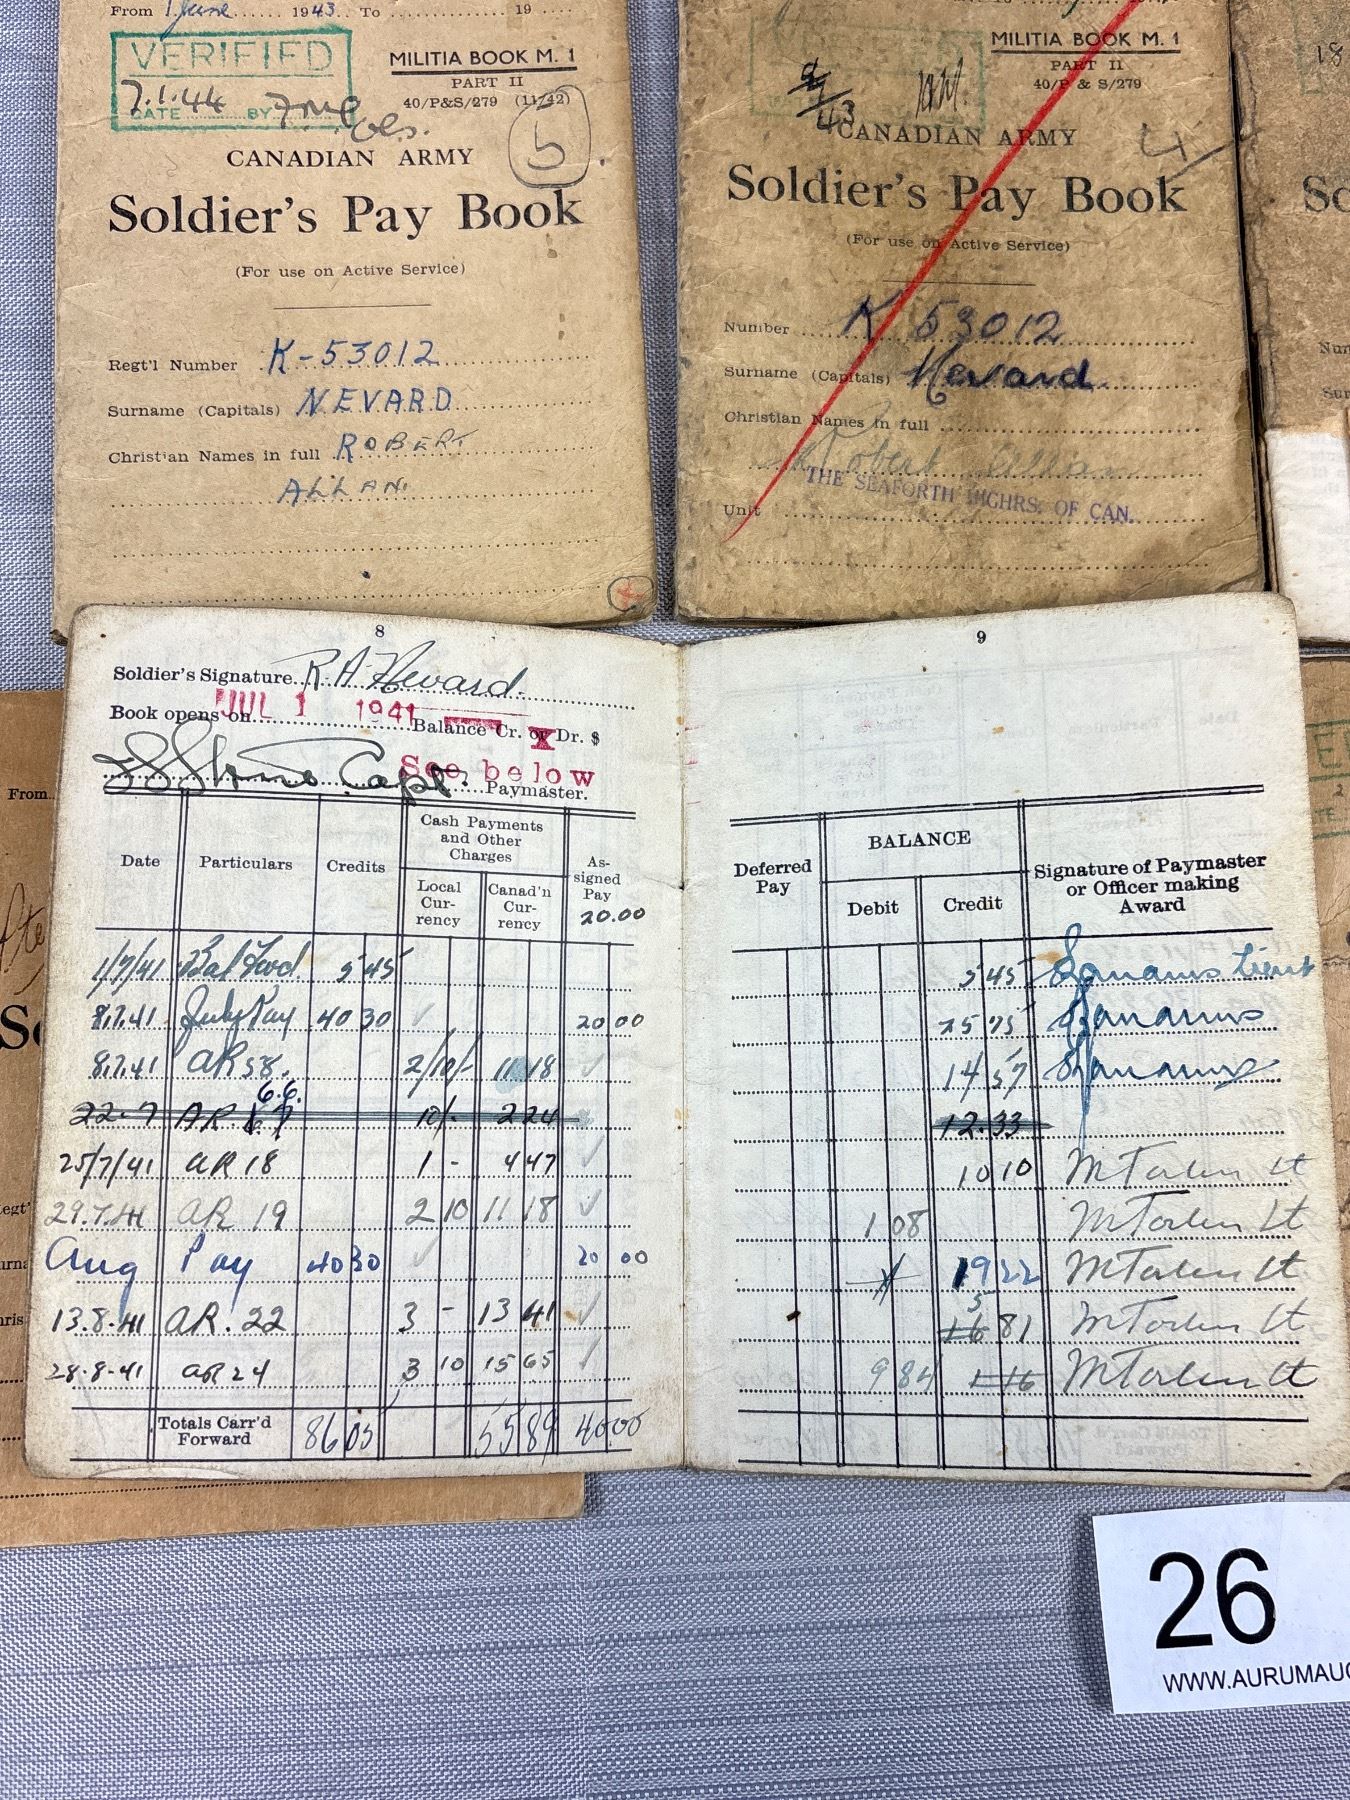 From 1 June 1943 To 19
VERIFIED
7.1.44
DATE BY
MILITIA BOOK M. 1
PART II
40/P&S/279 (11/42)
5
CANADIAN ARMY
Soldier's Pay Book
(For use on Active Service)
Regt'l Number K-53012
Surname (Capitals) NEVARD
Christian Names in full ROBERT
ALLAN
MILITIA BOOK M. 1
PART II
40/P & S/279
4
CANADIAN ARMY
Soldier's Pay Book
(For use on Active Service)
Number K 53012
Surname (Capitals) Nevard
Christian Names in full
Robert Allan
THE SEAFORTH HIGHRS. OF CAN.
Unit
8
Soldier's Signature R A Nevard
Book opens on JUL 1 1941 Balance Cr. or Dr. $
Capt. See below Paymaster.
Date Particulars Credits Cash Payments and Other Charges Local Currency Canad'n Currency Assigned Pay 20.00
1/7/41 Bal Fwd 5 45
8.7.41 July Pay 40 30 20 00
8.7.41 AR 58. 2/10/- 11 18
22-7 AR. 6.6. 10/- 2 24
25/7/41 AR 18 1 - 4 47
29.7.41 AR 19 2 10 11 18
Aug Pay 40 30 20 00
13.8.41 AR. 22 3 - 13 41
28-8-41 AR 24 3 10 15 65
Totals Carr'd Forward 86 05 55 89 40 00
9
Deferred Pay BALANCE Debit Credit Signature of Paymaster or Officer making Award
5 45 Lieut
25 75
14 57
12.33
10 10 Lt
1 08 Lt
19 22 Lt
5 81 Lt
9 84 Lt
From
So
26
WWW.AURUMAUC